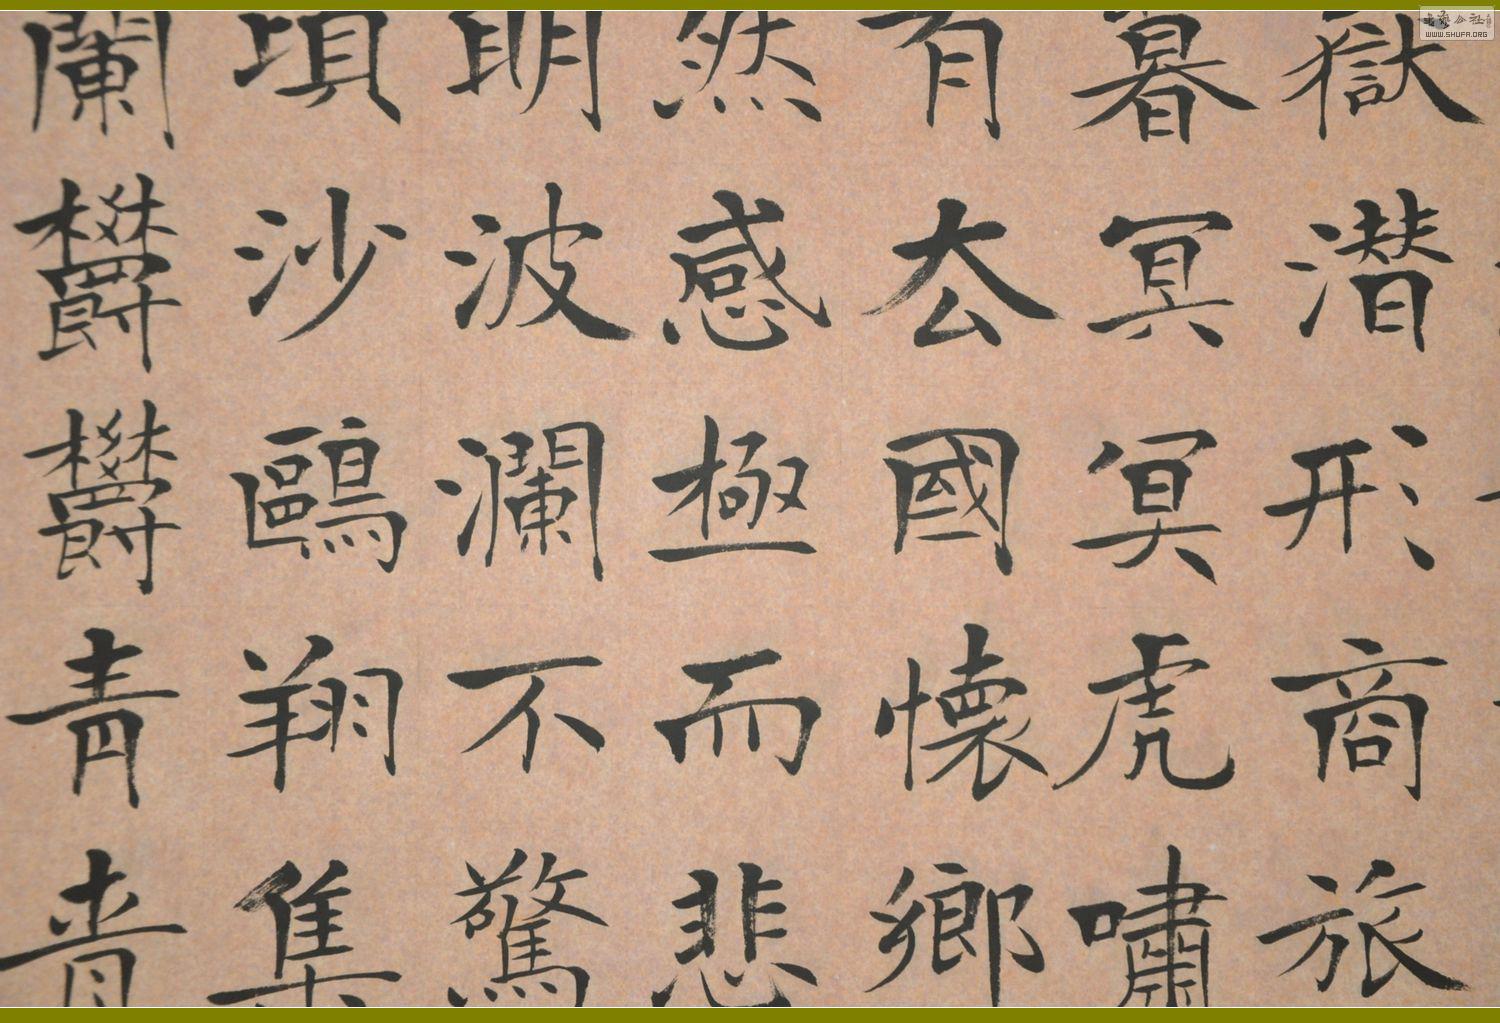 嶽潜形商旅
暮冥冥虎嘯
有去國懷鄉
然感極而悲
明波瀾不驚
頃沙鷗翔集
蘭鬱鬱青青
WWW.SHUFA.ORG